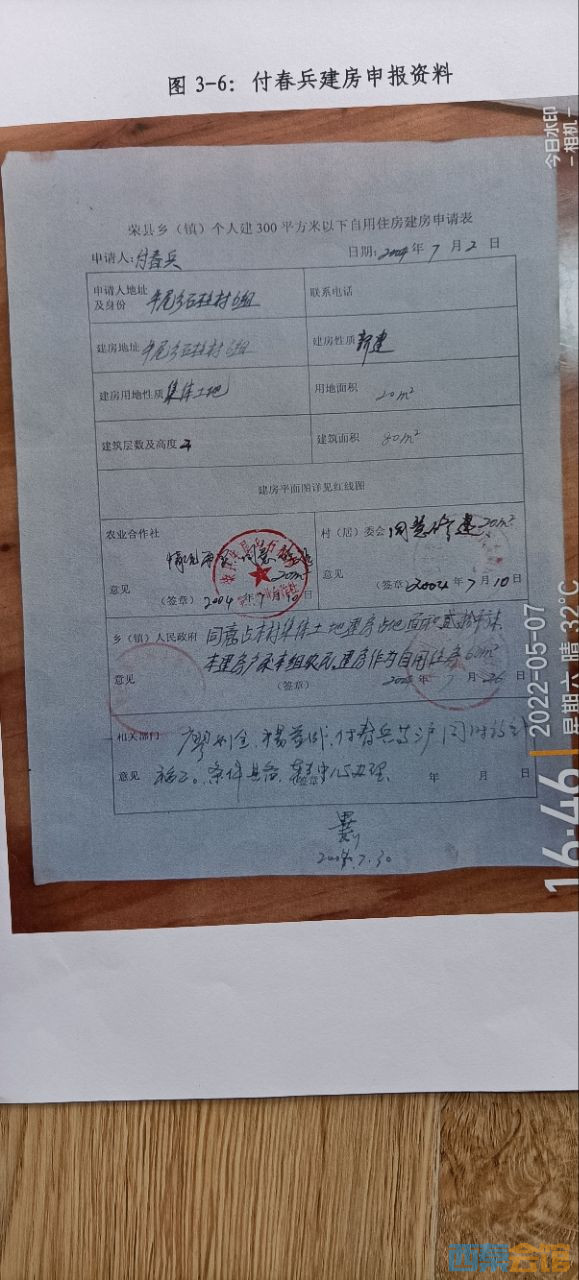 图 3-6：付春兵建房申报资料
荣县乡（镇）个人建300平方米以下自用住房建房申请表
申请人：付春兵 日期：2004年7月2日
申请人地址及身份 石柱村6组 联系电话
建房地址 石柱村6组 建房性质 新建
建房用地性质 集体土地 用地面积 20m²
建筑层数及高度 建筑面积 80m²
建房平面图详见红线图
农业合作社 村（居）委会 同意修建20m²
情况 同意 20m²
意见 （签章）2004年7月10日 意见 （签章）2004年7月10日
乡（镇）人民政府 同意占本村集体土地建房占地面积贰拾平米，
本组农民，建房作为自用住房60m²
意见 （签章） 7月26日
相关部门 付春兵等 同时
意见 条件具备， 办理 年 月 日
2004.7.30
今日水印
-相机-
16:46
2022-05-07
星期六 晴 32℃
西秦会馆